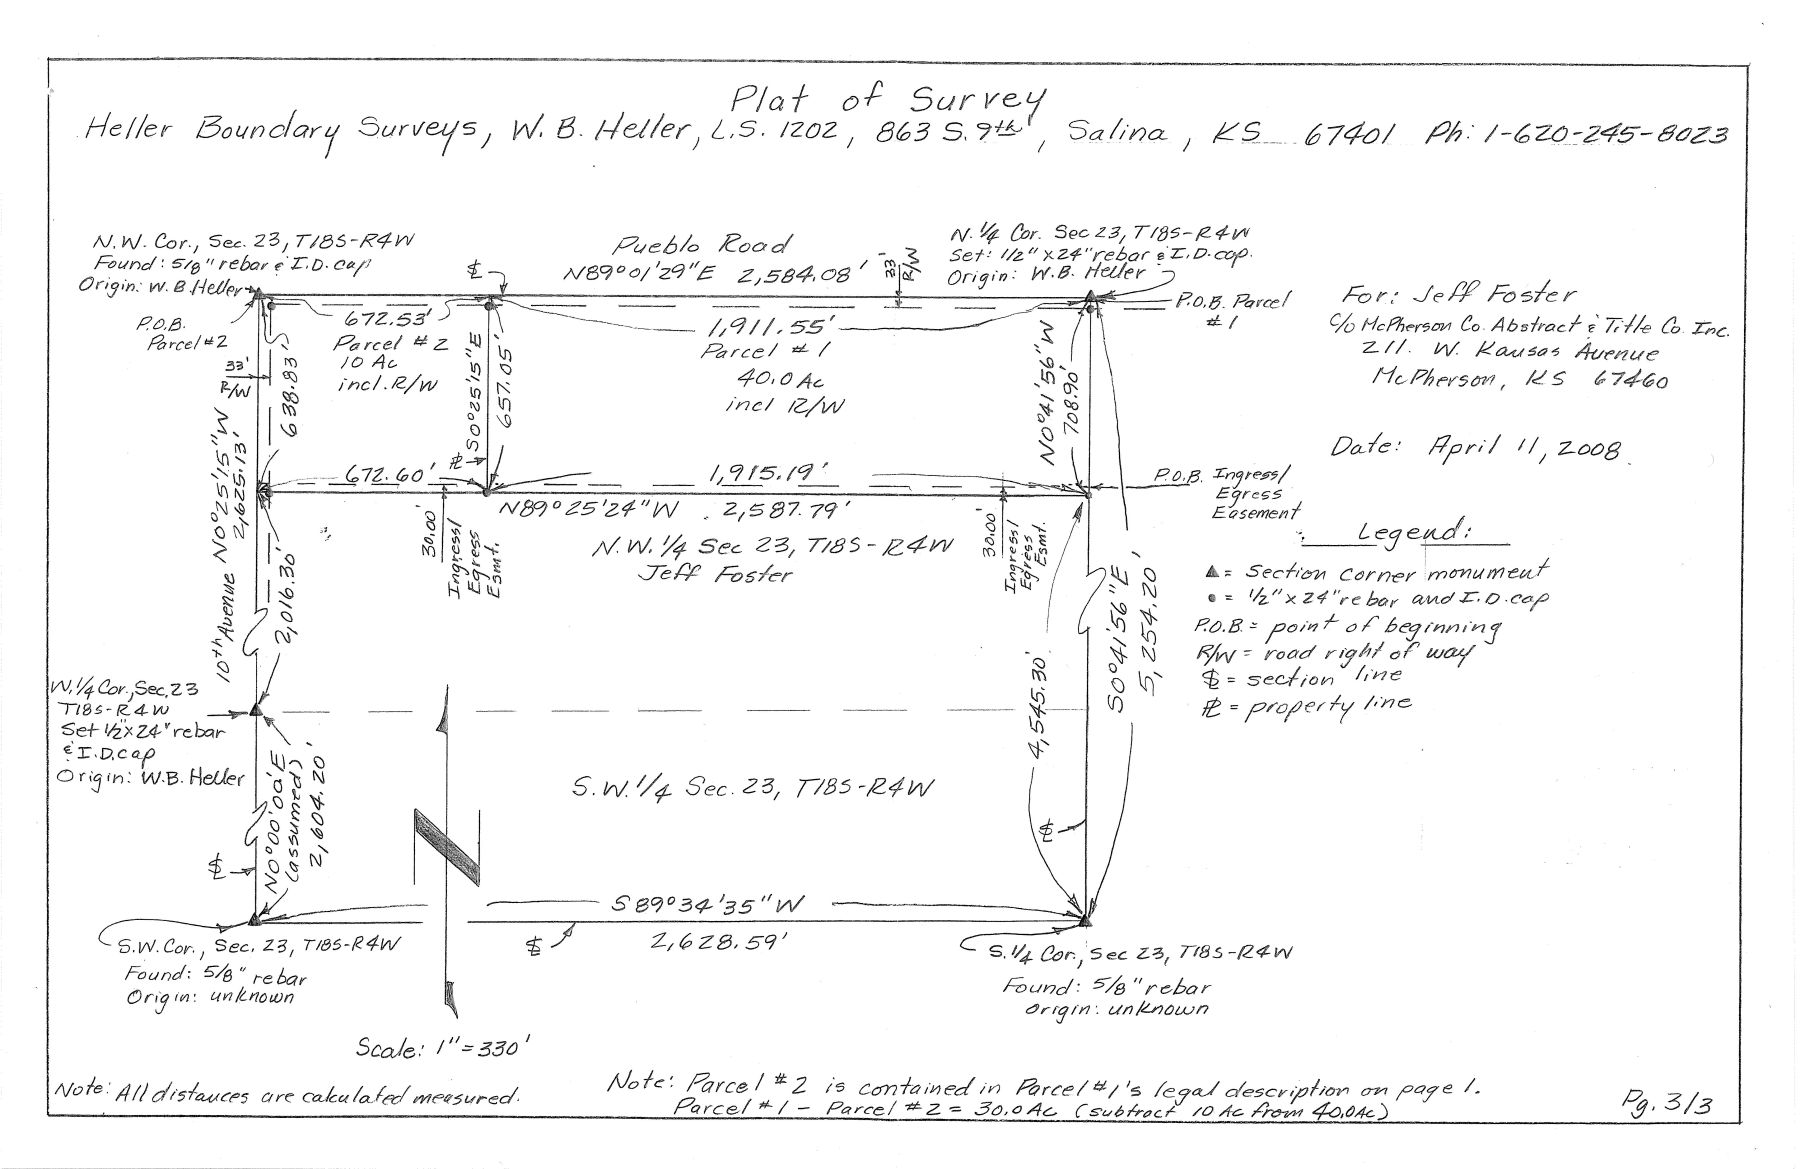 Plat of Survey
Heller Boundary Surveys, W. B. Heller, L.S. 1202, 863 S. 9th, Salina, KS 67401 Ph: 1-620-245-8023
N.W. Cor., Sec. 23, T18S-R4W
Found: 5/8" rebar & I.D. cap
Origin: W. B. Heller
P.O.B.
Parcel #2
33'
R/W
Pueblo Road
N89°01'29"E 2,584.08'
33'
R/W
N. 1/4 Cor. Sec 23, T18S-R4W
Set: 1/2" x 24" rebar & I.D. cap.
Origin: W.B. Heller
P.O.B. Parcel
#1
For: Jeff Foster
c/o McPherson Co. Abstract & Title Co. Inc.
211. W. Kansas Avenue
McPherson, KS 67460
Date: April 11, 2008
672.53'
Parcel #2
10 Ac
incl. R/W
638.83'
S0°25'15"E
657.05'
1,911.55'
Parcel #1
40.0 Ac
incl R/W
N0°41'56"W
708.90'
10th Avenue N0°25'15"W
2,625.13'
672.60'
1,915.19'
N89°25'24"W 2,587.79'
30.00'
Ingress/
Egress
Esmt.
30.00'
Ingress/
Egress
Esmt.
P.O.B. Ingress/
Egress
Easement
N.W. 1/4 Sec 23, T18S-R4W
Jeff Foster
2,016.30'
Legend:
▲ = section corner monument
● = 1/2" x 24" rebar and I.D. cap
P.O.B. = point of beginning
R/W = road right of way
= section line
= property line
S0°41'56"E
5,254.20'
4,545.30'
W. 1/4 Cor., Sec. 23
T18S-R4W
Set 1/2"x24" rebar
& I.D. cap
Origin: W.B. Heller
N0°00'00"E
(assumed)
2,604.20'
S.W. 1/4 Sec. 23, T18S-R4W
S89°34'35"W
2,628.59'
S.W. Cor., Sec. 23, T18S-R4W
Found: 5/8" rebar
Origin: unknown
S. 1/4 Cor., Sec 23, T18S-R4W
Found: 5/8" rebar
Origin: unknown
N
Scale: 1" = 330'
Note: All distances are calculated measured.
Note: Parcel #2 is contained in Parcel #1's legal description on page 1.
Parcel #1 - Parcel #2 = 30.0 Ac (subtract 10 Ac from 40.0 Ac)
Pg. 3/3